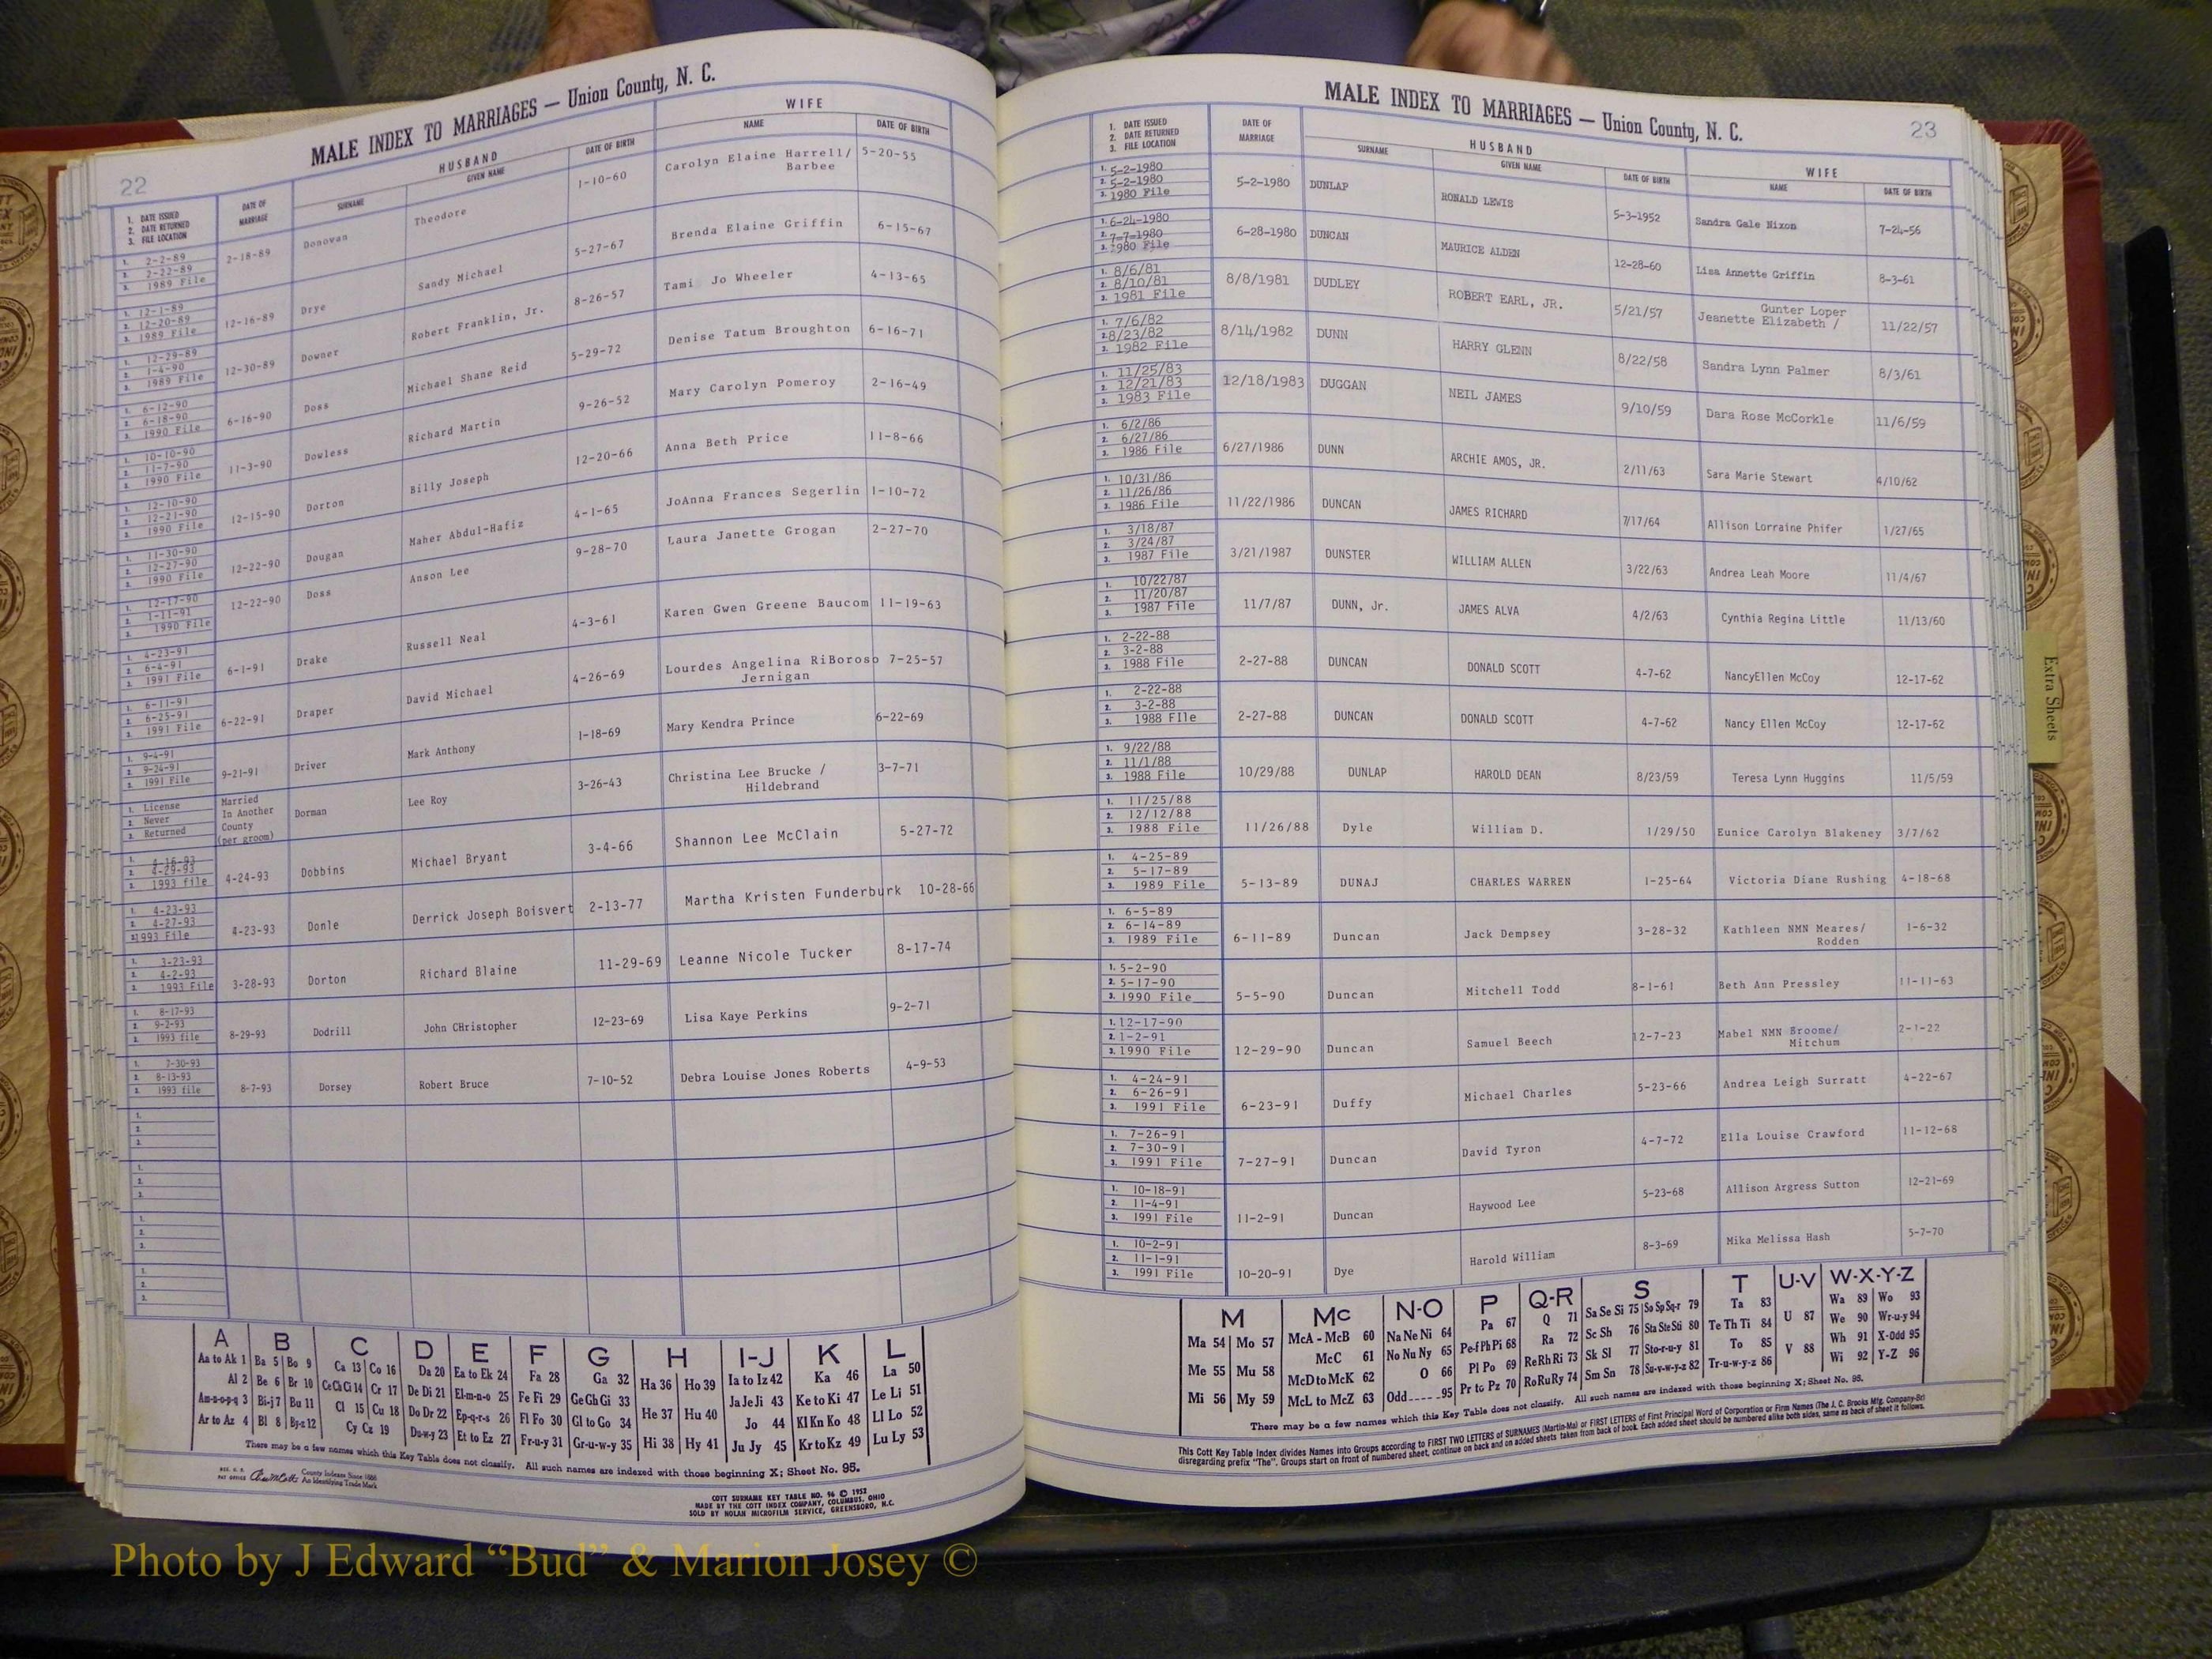 MALE INDEX TO MARRIAGES — Union County, N. C.
22
1. DATE ISSUED
2. DATE RETURNED
3. FILE LOCATION
DATE OF MARRIAGE
HUSBAND
SURNAME GIVEN NAME DATE OF BIRTH
WIFE
NAME DATE OF BIRTH
1. 2-2-89
2. 2-22-89
3. 1989 File
2-18-89 Donovan Theodore 1-10-60 Carolyn Elaine Harrell/ Barbee 5-20-55
1. 12-1-89
2. 12-20-89
3. 1989 File
12-16-89 Drye Sandy Michael 5-27-67 Brenda Elaine Griffin 6-15-67
1. 12-29-89
2. 1-4-90
3. 1989 File
12-30-89 Downer Robert Franklin, Jr. 8-26-57 Tami Jo Wheeler 4-13-65
1. 6-12-90
2. 6-18-90
3. 1990 File
6-16-90 Doss Michael Shane Reid 5-29-72 Denise Tatum Broughton 6-16-71
1. 10-10-90
2. 11-7-90
3. 1990 File
11-3-90 Dowless Richard Martin 9-26-52 Mary Carolyn Pomeroy 2-16-49
1. 12-10-90
2. 12-21-90
3. 1990 File
12-15-90 Dorton Billy Joseph 12-20-66 Anna Beth Price 11-8-66
1. 11-30-90
2. 12-27-90
3. 1990 File
12-22-90 Dougan Maher Abdul-Hafiz 4-1-65 JoAnna Frances Segerlin 1-10-72
1. 12-17-90
2. 1-11-91
3. 1990 File
12-22-90 Doss Anson Lee 9-28-70 Laura Janette Grogan 2-27-70
1. 4-23-91
2. 6-4-91
3. 1991 File
6-1-91 Drake Russell Neal 4-3-61 Karen Gwen Greene Baucom 11-19-63
1. 6-11-91
2. 6-25-91
3. 1991 File
6-22-91 Draper David Michael 4-26-69 Lourdes Angelina RiBoroso Jernigan 7-25-57
1. 9-4-91
2. 9-24-91
3. 1991 File
9-21-91 Driver Mark Anthony 1-18-69 Mary Kendra Prince 6-22-69
1. License
2. Never
3. Returned
Married In Another County (per groom) Dorman Lee Roy 3-26-43 Christina Lee Brucke / Hildebrand 3-7-71
1. 4-16-93
2. 4-29-93
3. 1993 file
4-24-93 Dobbins Michael Bryant 3-4-66 Shannon Lee McClain 5-27-72
1. 4-23-93
2. 4-27-93
3. 1993 File
4-23-93 Donle Derrick Joseph Boisvert 2-13-77 Martha Kristen Funderburk 10-28-66
1. 3-23-93
2. 4-2-93
3. 1993 File
3-28-93 Dorton Richard Blaine 11-29-69 Leanne Nicole Tucker 8-17-74
1. 8-17-93
2. 9-2-93
3. 1993 file
8-29-93 Dodrill John CHristopher 12-23-69 Lisa Kaye Perkins 9-2-71
1. 7-30-93
2. 8-13-93
3. 1993 file
8-7-93 Dorsey Robert Bruce 7-10-52 Debra Louise Jones Roberts 4-9-53
1.
2.
3.
1.
2.
3.
1.
2.
3.
1.
2.
3.
A B C D E F G H I-J K L
Aa to Ak 1 Ba 5 Bo 9 Ca 13 Co 16 Da 20 Ea to Ek 24 Fa 28 Ga 32 Ha 36 Ho 39 Ia to Iz 42 Ka 46 La 50
Al 2 Be 6 Br 10 Ce Ch Ci 14 Cr 17 De Di 21 El-m-n-o 25 Fe Fi 29 Ge Gh Gi 33 He 37 Hu 40 Ja Je Ji 43 Ke to Ki 47 Le Li 51
Am-n-o-p-q 3 Bi-j 7 Bu 11 Cl 15 Cu 18 Do Dr 22 Ep-q-r-s 26 Fl Fo 30 Gl to Go 34 Jo 44 Kl Kn Ko 48 Ll Lo 52
Ar to Az 4 Bl 8 By-z 12 Cy Cz 19 Du-w-y 23 Et to Ez 27 Fr-u-y 31 Gr-u-w-y 35 Hi 38 Hy 41 Ju Jy 45 Kr to Kz 49 Lu Ly 53
There may be a few names which this Key Table does not classify. All such names are indexed with those beginning X; Sheet No. 95.
REG. U. S. PAT OFFICE
County Indexes Since 1888
An Identifying Trade Mark
COTT SURNAME KEY TABLE NO. 96 © 1952
MADE BY THE COTT INDEX COMPANY, COLUMBUS, OHIO
SOLD BY NOLAN MICROFILM SERVICE, GREENSBORO, N.C.
MALE INDEX TO MARRIAGES — Union County, N. C.
23
1. DATE ISSUED
2. DATE RETURNED
3. FILE LOCATION
DATE OF MARRIAGE
HUSBAND
SURNAME GIVEN NAME DATE OF BIRTH
WIFE
NAME DATE OF BIRTH
1. 5-2-1980
2. 5-2-1980
3. 1980 File
5-2-1980 DUNLAP RONALD LEWIS 5-3-1952 Sandra Gale Nixon 7-24-56
1. 6-24-1980
2. 7-7-1980
3. 1980 File
6-28-1980 DUNCAN MAURICE ALDEN 12-28-60 Lisa Annette Griffin 8-3-61
1. 8/6/81
2. 8/10/81
3. 1981 File
8/8/1981 DUDLEY ROBERT EARL, JR. 5/21/57 Gunter Loper Jeanette Elizabeth / 11/22/57
1. 7/6/82
2. 8/23/82
3. 1982 File
8/14/1982 DUNN HARRY GLENN 8/22/58 Sandra Lynn Palmer 8/3/61
1. 11/25/83
2. 12/21/83
3. 1983 File
12/18/1983 DUGGAN NEIL JAMES 9/10/59 Dara Rose McCorkle 11/6/59
1. 6/2/86
2. 6/27/86
3. 1986 File
6/27/1986 DUNN ARCHIE AMOS, JR. 2/11/63 Sara Marie Stewart 4/10/62
1. 10/31/86
2. 11/26/86
3. 1986 File
11/22/1986 DUNCAN JAMES RICHARD 7/17/64 Allison Lorraine Phifer 1/27/65
1. 3/18/87
2. 3/24/87
3. 1987 File
3/21/1987 DUNSTER WILLIAM ALLEN 3/22/63 Andrea Leah Moore 11/4/67
1. 10/22/87
2. 11/20/87
3. 1987 File
11/7/87 DUNN, Jr. JAMES ALVA 4/2/63 Cynthia Regina Little 11/13/60
1. 2-22-88
2. 3-2-88
3. 1988 File
2-27-88 DUNCAN DONALD SCOTT 4-7-62 NancyEllen McCoy 12-17-62
1. 2-22-88
2. 3-2-88
3. 1988 FIle
2-27-88 DUNCAN DONALD SCOTT 4-7-62 Nancy Ellen McCoy 12-17-62
1. 9/22/88
2. 11/1/88
3. 1988 File
10/29/88 DUNLAP HAROLD DEAN 8/23/59 Teresa Lynn Huggins 11/5/59
1. 11/25/88
2. 12/12/88
3. 1988 File
11/26/88 Dyle William D. 1/29/50 Eunice Carolyn Blakeney 3/7/62
1. 4-25-89
2. 5-17-89
3. 1989 File
5-13-89 DUNAJ CHARLES WARREN 1-25-64 Victoria Diane Rushing 4-18-68
1. 6-5-89
2. 6-14-89
3. 1989 File
6-11-89 Duncan Jack Dempsey 3-28-32 Kathleen NMN Meares/ Rodden 1-6-32
1. 5-2-90
2. 5-17-90
3. 1990 File
5-5-90 Duncan Mitchell Todd 8-1-61 Beth Ann Pressley 11-11-63
1. 12-17-90
2. 1-2-91
3. 1990 File
12-29-90 Duncan Samuel Beech 12-7-23 Mabel NMN Broome/ Mitchum 2-1-22
1. 4-24-91
2. 6-26-91
3. 1991 File
6-23-91 Duffy Michael Charles 5-23-66 Andrea Leigh Surratt 4-22-67
1. 7-26-91
2. 7-30-91
3. 1991 File
7-27-91 Duncan David Tyron 4-7-72 Ella Louise Crawford 11-12-68
1. 10-18-91
2. 11-4-91
3. 1991 File
11-2-91 Duncan Haywood Lee 5-23-68 Allison Argress Sutton 12-21-69
1. 10-2-91
2. 11-1-91
3. 1991 File
10-20-91 Dye Harold William 8-3-69 Mika Melissa Hash 5-7-70
M Mc N-O P Q-R S T U-V W-X-Y-Z
Ma 54 Mo 57 McA - McB 60 Na Ne Ni 64 Pa 67 Q 71 Sa Se Si 75 So Sp Sq-r 79 Ta 83 U 87 Wa 89 Wo 93
McC 61 No Nu Ny 65 Pe-f Ph Pi 68 Ra 72 Sc Sh 76 Sta Ste Sti 80 Te Th Ti 84 We 90 Wr-u-y 94
Me 55 Mu 58 McD to McK 62 O 66 Pl Po 69 Re Rh Ri 73 Sk Sl 77 Sto-r-u-y 81 To 85 V 88 Wh 91 X-Odd 95
Mi 56 My 59 McL to McZ 63 Odd 95 Pr to Pz 70 Ro Ru Ry 74 Sm Sn 78 Su-v-w-y-z 82 Tr-u-w-y-z 86 Wi 92 Y-Z 96
There may be a few names which this Key Table does not classify. All such names are indexed with those beginning X; Sheet No. 95.
This Cott Key Table Index divides Names into Groups according to FIRST TWO LETTERS of SURNAMES (Martin-Ma) or FIRST LETTERS of First Principal Word of Corporation or Firm Names (The J. C. Brooks Mfg. Company-Br)
disregarding prefix "The". Groups start on front of numbered sheet, continue on back and on added sheets taken from back of book. Each added sheet should be numbered alike both sides, same as back of sheet it follows.
Extra Sheets
Photo by J Edward “Bud” & Marion Josey ©